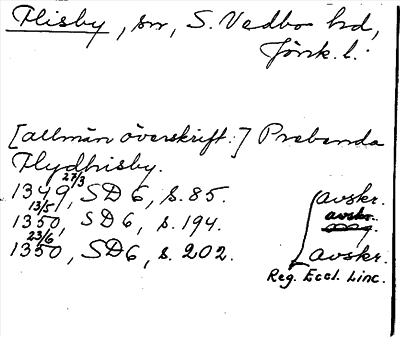 Flisby, sn, S. Vedbo hd,
Jönk. l.
[allmän överskrift:] Prebenda
Flydhisby.
1349 27/3, SD 6, s. 85. avskr.
1350 13/5, SD 6, s. 194. avskr.
1350 23/6, SD 6, s. 202. avskr.
Reg. Eccl. Linc.